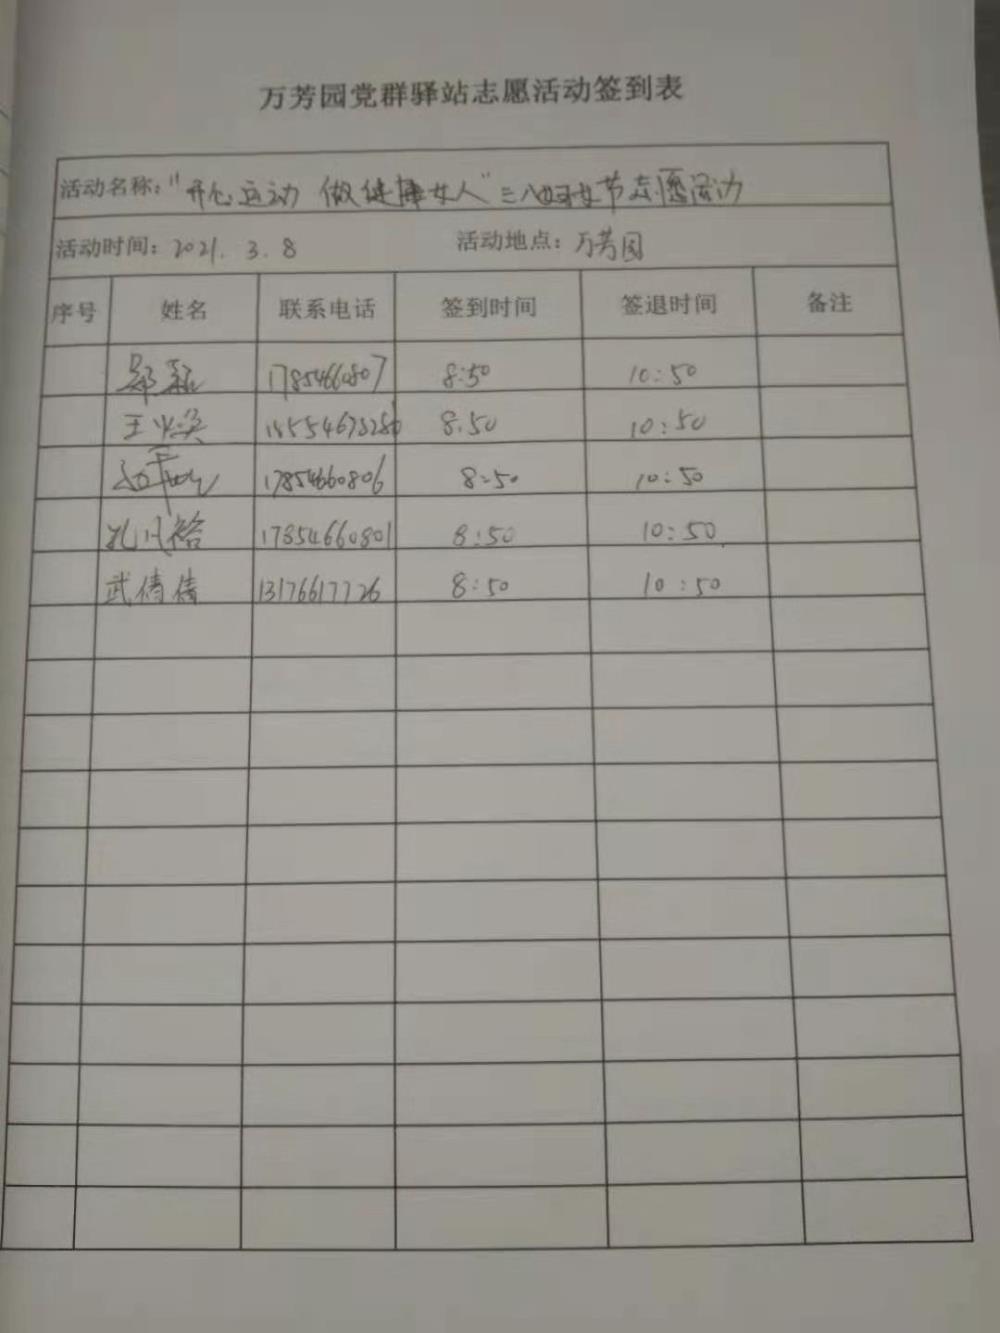 万芳园党群驿站志愿活动签到表
活动名称："开心运动 做健康女人"三八妇女节志愿活动
活动时间：2021.3.8 活动地点：万芳园
序号 姓名 联系电话 签到时间 签退时间 备注
17854660807 8:50 10:50
王 8.50 10:50
17854660806 8:50 10:50
孔凡裕 17854660801 8:50 10:50
武倩倩 13176617726 8:50 10:50